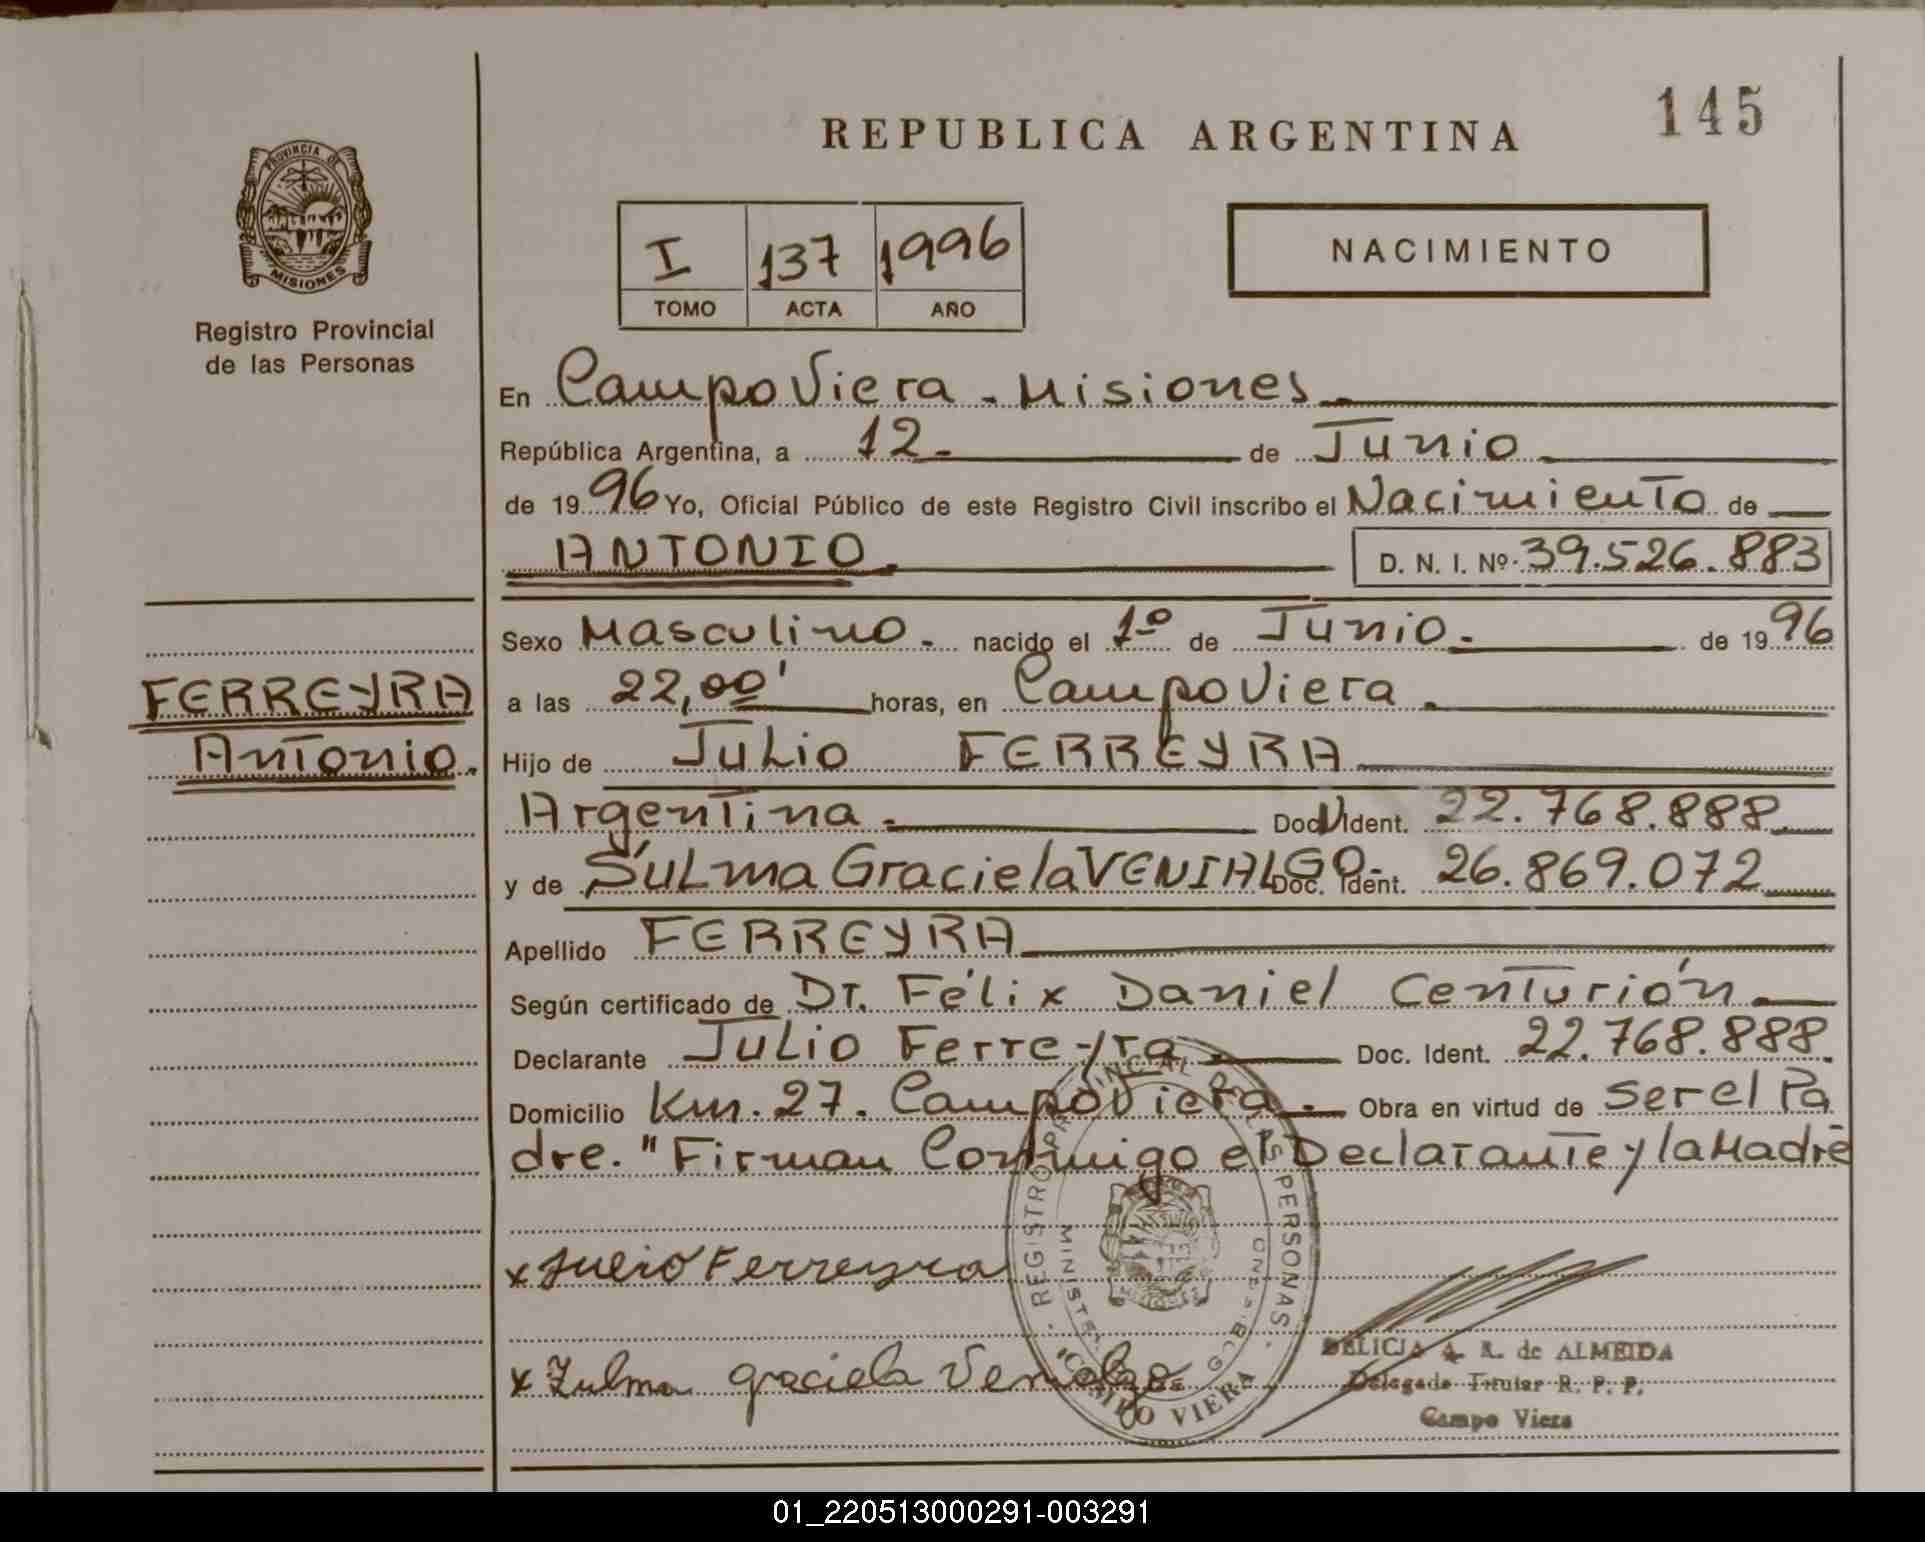 145
REPUBLICA ARGENTINA
PROVINCIA DE
MISIONES
Registro Provincial
de las Personas
I 137 1996
TOMO ACTA AÑO
NACIMIENTO
En Campo Viera - Misiones
República Argentina, a 12 de Junio
de 1996 Yo, Oficial Público de este Registro Civil inscribo el Nacimiento de
ANTONIO. D. N. I. Nº 39.526.883
Sexo Masculino. nacido el 1º de Junio. de 1996
FERREYRA
Antonio.
a las 22,00' horas, en Campo Viera.
Hijo de Julio FERREYRA
Argentina. Doc. Ident. 22.768.888
y de Sulma Graciela VENIALGO- Doc. Ident. 26.869.072
Apellido FERREYRA
Según certificado de Dr. Félix Daniel Centurión.
Declarante Julio Ferreyra. Doc. Ident. 22.768.888.
Domicilio Km. 27. Campo Viera. Obra en virtud de ser el Pa
dre. "Firman Conmigo el Declarante y la Madre
x Julio Ferreyra
x Zulma graciela Venialgo
REGISTRO PROVINCIAL DE LAS PERSONAS
CAMPO VIERA
DELICIA A. R. de ALMEIDA
Delegada Titular R. P. P.
Campo Viera
01_220513000291-003291